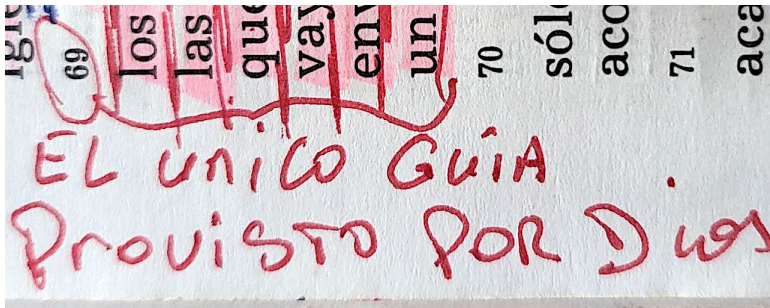 69
los
las
que
vay
env
un
70
sól
aco
71
aca
EL UNICO GUÍA
PROVISTO POR DIOS